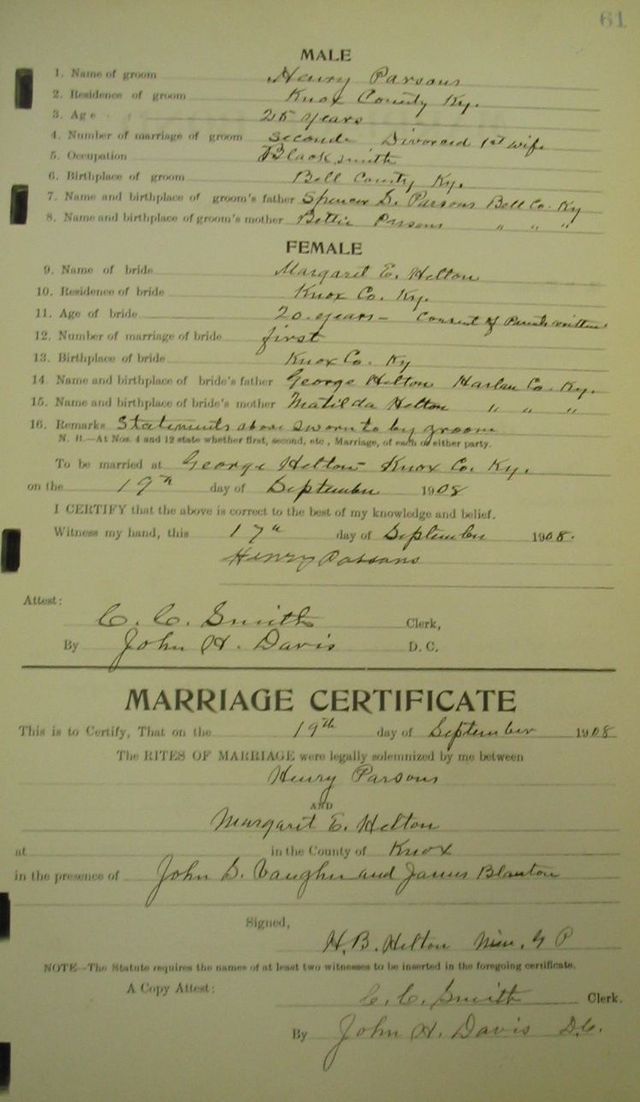 61
MALE
1. Name of groom Henry Parsons
2. Residence of groom Knox County Ky.
3. Age 25 years
4. Number of marriage of groom Seconde Divorced 1st wife
5. Occupation Blacksmith
6. Birthplace of groom Bell County Ky.
7. Name and birthplace of groom's father Spencer G. Parsons Bell Co. Ky
8. Name and birthplace of groom's mother Bettie Parsons " " "
FEMALE
9. Name of bride Margaret E. Helton
10. Residence of bride Knox Co. Ky.
11. Age of bride 20 years - Consent of Parents written
12. Number of marriage of bride first
13. Birthplace of bride Knox Co. Ky
14. Name and birthplace of bride's father George Helton Harlan Co. Ky.
15. Name and birthplace of bride's mother Matilda Helton " " "
16. Remarks Statements above sworn to by groom
N. B.—At Nos. 4 and 12 state whether first, second, etc., Marriage, of each or either party.
To be married at George Helton- Knox Co. Ky.
on the 19th day of September 1908
I CERTIFY that the above is correct to the best of my knowledge and belief.
Witness my hand, this 17th day of September 1908.
Henry Parsons
Attest:
C. C. Smith Clerk,
By John H. Davis D. C.
MARRIAGE CERTIFICATE
This is to Certify, That on the 19th day of September 1908
The RITES OF MARRIAGE were legally solemnized by me between
Henry Parsons
AND
Margaret E. Helton
at in the County of Knox
in the presence of John G. Vaughn and James Blanton
Signed,
H. B. Helton Min. G P
NOTE—The Statute requires the names of at least two witnesses to be inserted in the foregoing certificate.
A Copy Attest:
C. C. Smith Clerk.
By John H. Davis D.C.